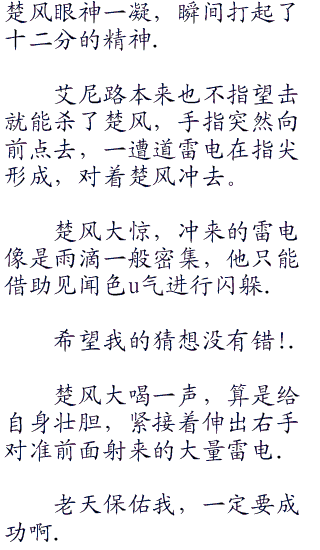 楚风眼神一凝，瞬间打起了
十二分的精神.
艾尼路本来也不指望击
就能杀了楚风，手指突然向
前点去，一遭道雷电在指尖
形成，对着楚风冲去。
楚风大惊，冲来的雷电
像是雨滴一般密集，他只能
借助见闻色u气进行闪躲.
希望我的猜想没有错!.
楚风大喝一声，算是给
自身壮胆，紧接着伸出右手
对准前面射来的大量雷电.
老天保佑我，一定要成
功啊.